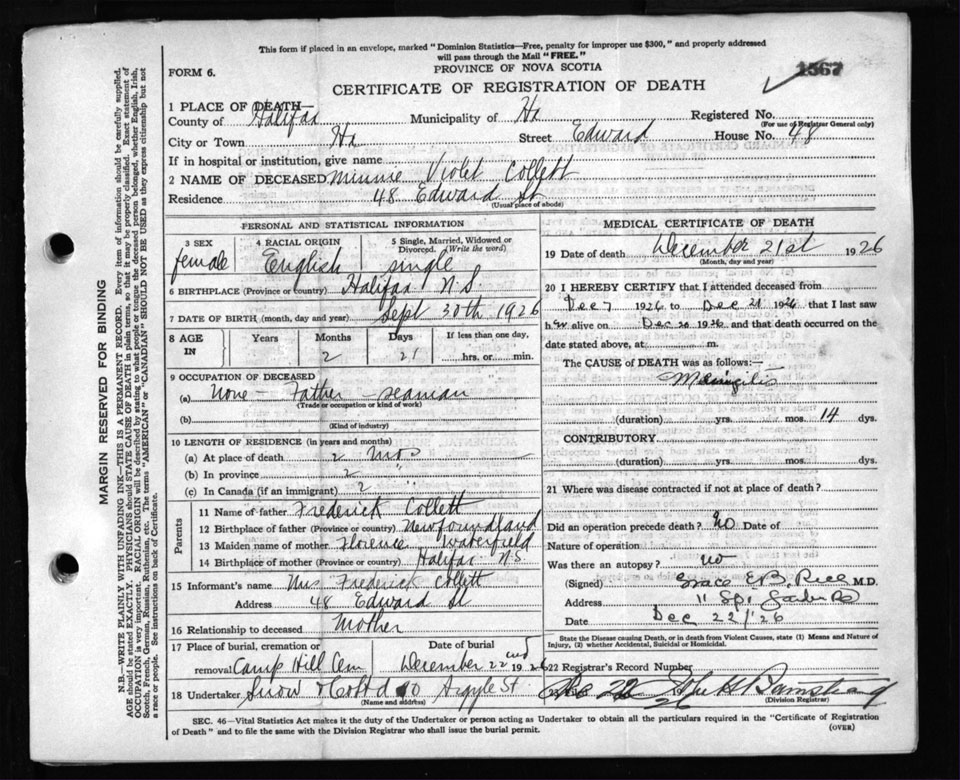 This form if placed in an envelope, marked "Dominion Statistics—Free, penalty for improper use $300," and properly addressed
will pass through the Mail "FREE."
FORM 6.
PROVINCE OF NOVA SCOTIA
1567
CERTIFICATE OF REGISTRATION OF DEATH
1 PLACE OF DEATH—
County of Halifax Municipality of Hx Registered No.
(For use of Registrar General only)
City or Town Hx Street Edward House No. 48
If in hospital or institution, give name
2 NAME OF DECEASED Minnie Violet Collett
Residence 48 Edward St
(Usual place of abode)
PERSONAL AND STATISTICAL INFORMATION
3 SEX 4 RACIAL ORIGIN 5 Single, Married, Widowed or Divorced. (Write the word)
female English single
6 BIRTHPLACE (Province or country) Halifax N.S.
7 DATE OF BIRTH (month, day and year) Sept 30th 1926
8 AGE IN Years Months Days If less than one day,
2 21 hrs. or min.
9 OCCUPATION OF DECEASED
(a) None - Father - seaman
(Trade or occupation or kind of work)
(b)
(Kind of industry)
10 LENGTH OF RESIDENCE (in years and months)
(a) At place of death 2 mos
(b) In province 2 "
(c) In Canada (if an immigrant) 2
Parents
11 Name of father Frederick Collett
12 Birthplace of father (Province or country) Newfoundland
13 Maiden name of mother Florence Wakefield
14 Birthplace of mother (Province or country) Halifax N.S.
15 Informant's name Mrs Frederick Collett
Address 48 Edward St
16 Relationship to deceased Mother
17 Place of burial, cremation or removal Camp Hill Cem Date of burial December 22nd 1926
18 Undertaker Snow & Co Ltd 90 Argyle St
(Name and address)
MEDICAL CERTIFICATE OF DEATH
19 Date of death December 21st 1926
(Month, day and year)
20 I HEREBY CERTIFY that I attended deceased from
Dec 7 1926 to Dec 21 1926 that I last saw
her alive on Dec 20 1926 and that death occurred on the
date stated above, at m.
The CAUSE of DEATH was as follows:—
Meningitis
(duration) yrs. mos. 14 dys.
CONTRIBUTORY
(duration) yrs. mos. dys.
21 Where was disease contracted if not at place of death?
Did an operation precede death? No Date of
Nature of operation
Was there an autopsy? no
(Signed) Grace E.B. Rice M.D.
Address 11 Spr Garden Rd
Date Dec 22/26
State the Disease causing Death, or in death from Violent Causes, state (1) Means and Nature of
Injury, (2) whether Accidental, Suicidal or Homicidal.
22 Registrar's Record Number
23 Dec 22 26 John H Barnstead
(Division Registrar)
SEC. 46—Vital Statistics Act makes it the duty of the Undertaker or person acting as Undertaker to obtain all the particulars required in the "Certificate of Registration
of Death" and to file the same with the Division Registrar who shall issue the burial permit. (OVER)
MARGIN RESERVED FOR BINDING
N.B.—WRITE PLAINLY WITH UNFADING INK—THIS IS A PERMANENT RECORD. Every item of information should be carefully supplied.
AGE should be stated EXACTLY. PHYSICIANS should STATE CAUSE OF DEATH in plain terms, so that it may be properly classified. Exact statement of
OCCUPATION is very important. RACIAL ORIGIN will be described by stating to what people or tongue the deceased person belonged, whether English, Irish,
Scotch, French, German, Russian, Ruthenian, etc. The terms "AMERICAN" or "CANADIAN" SHOULD NOT BE USED as they express citizenship but not
a race or people. See instructions on back of Certificate.